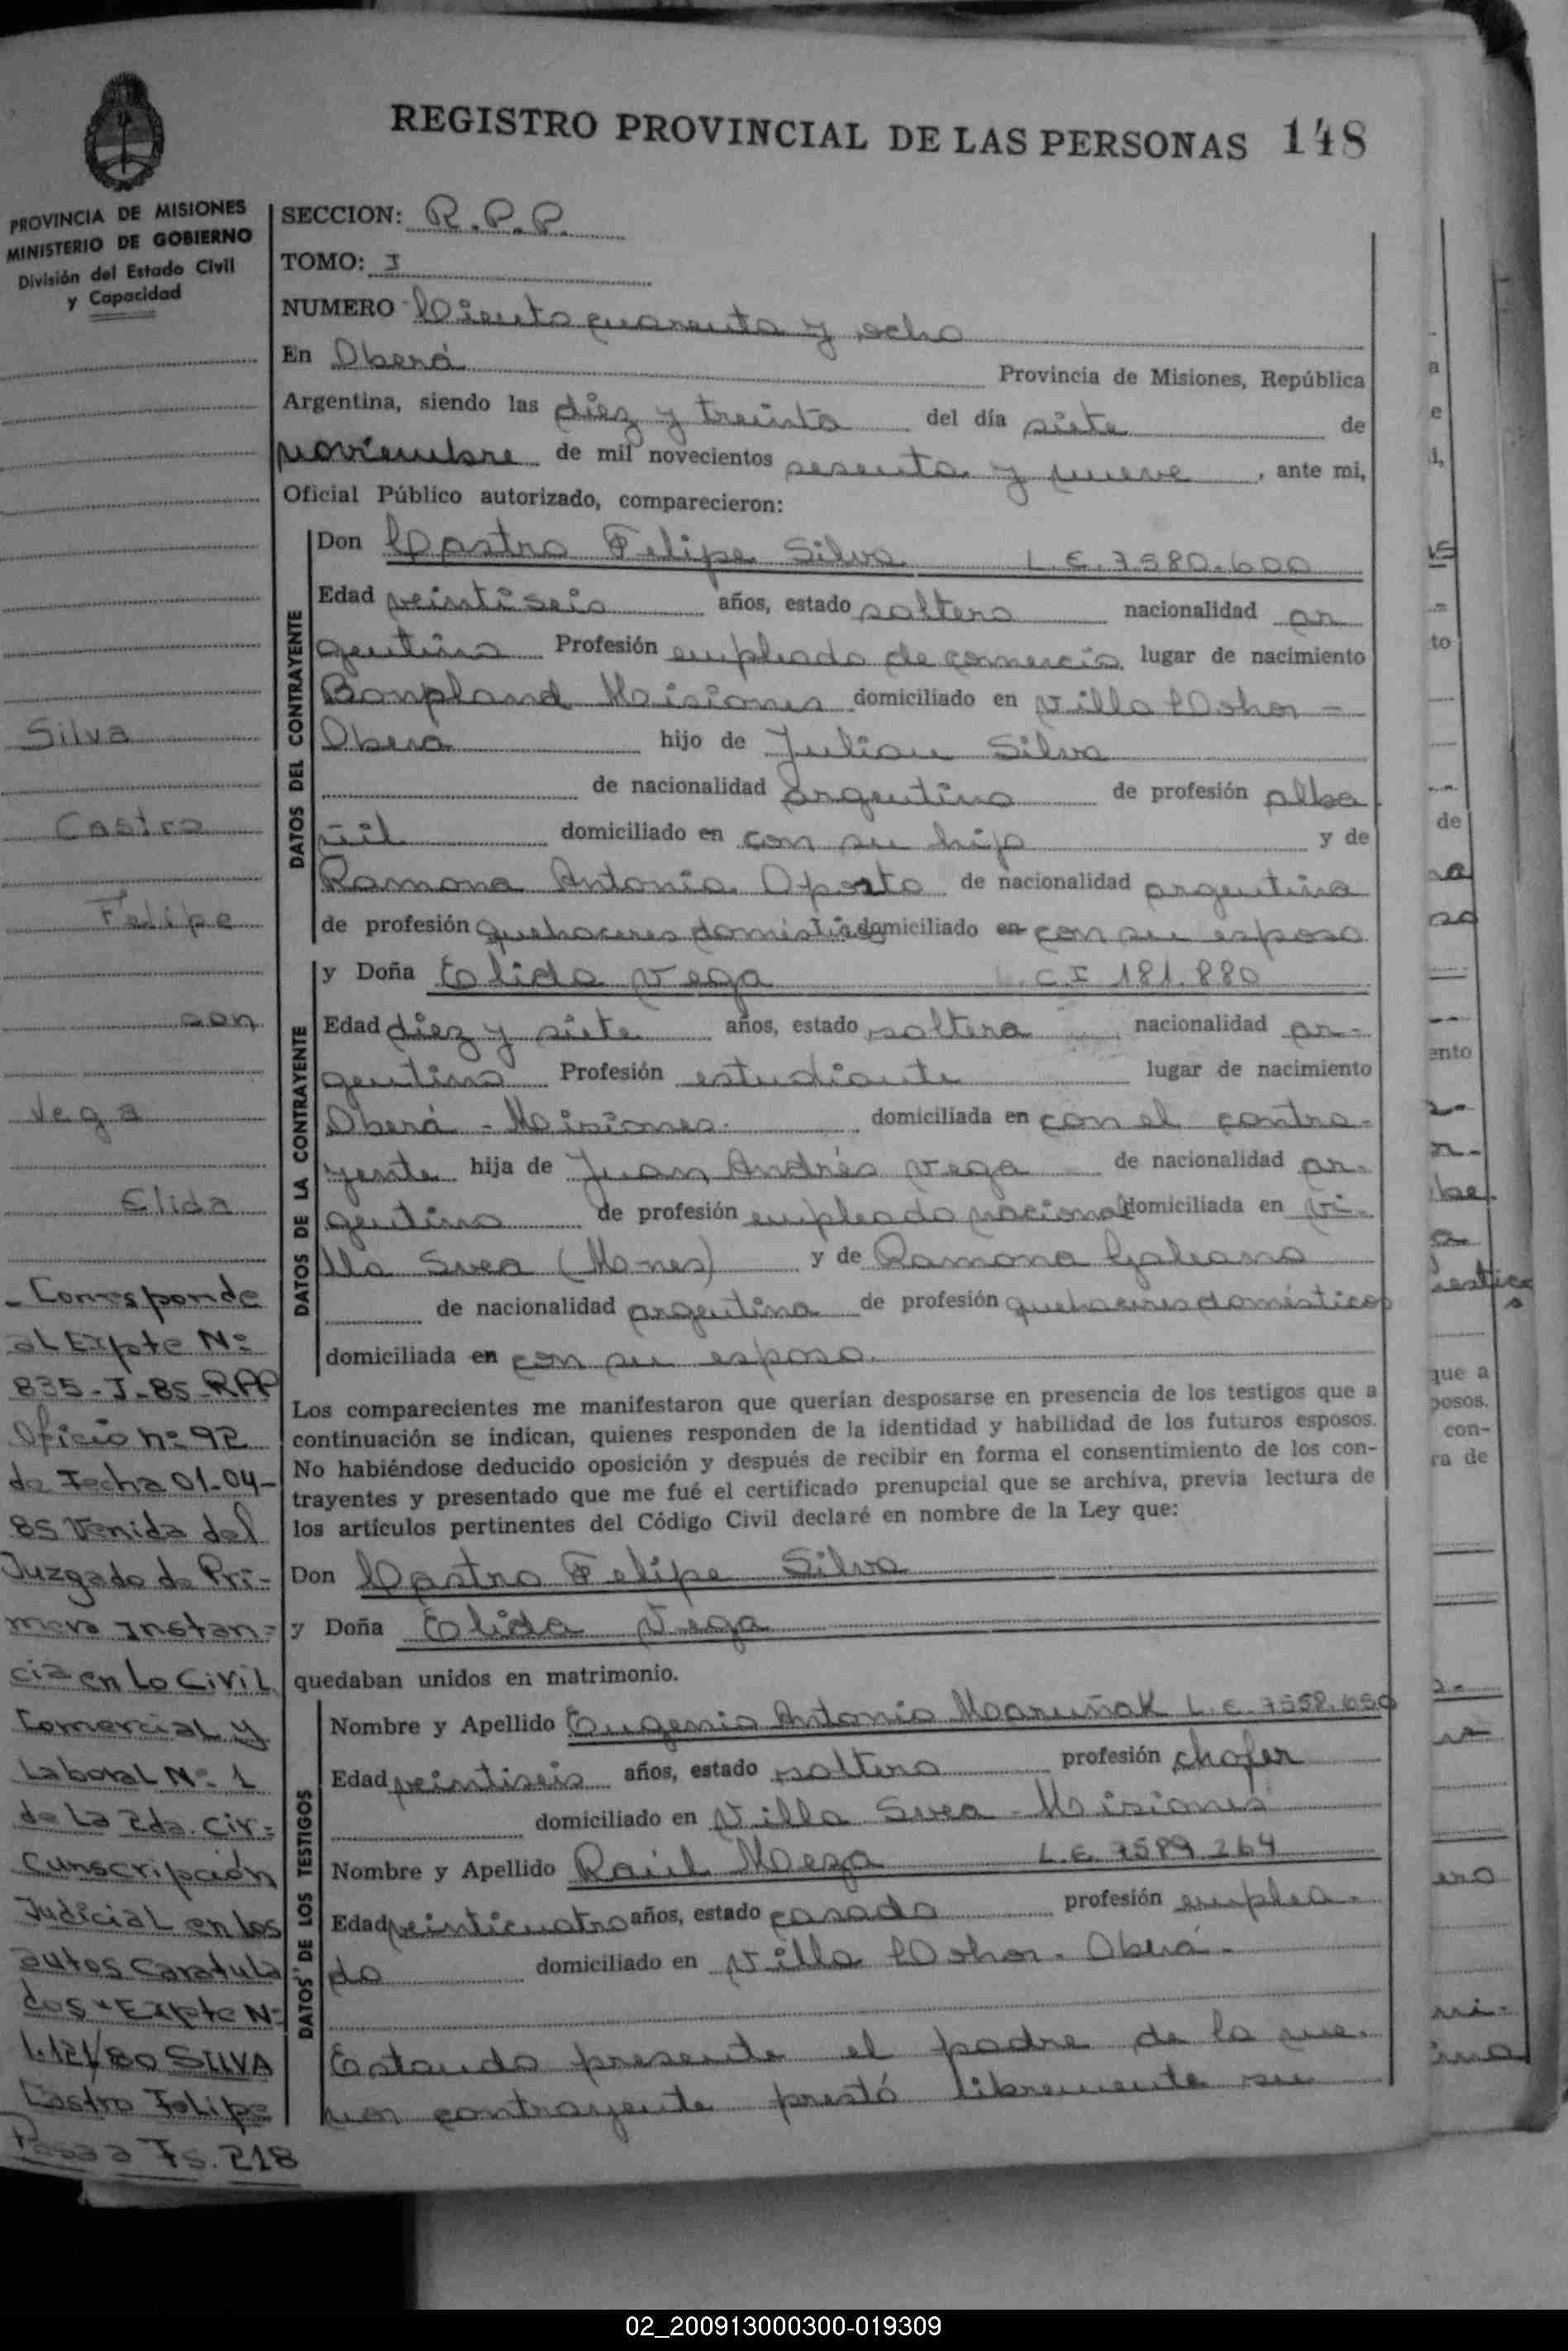 REGISTRO PROVINCIAL DE LAS PERSONAS 148
PROVINCIA DE MISIONES
MINISTERIO DE GOBIERNO
División del Estado Civil
y Capacidad
SECCION: R.P.P.
TOMO: I
NUMERO Ciento cuarenta y ocho
En Oberá Provincia de Misiones, República
Argentina, siendo las diez y treinta del día siete de
noviembre de mil novecientos sesenta y nueve, ante mi,
Oficial Público autorizado, comparecieron:
DATOS DEL CONTRAYENTE
Don Castro Felipe Silva L.E. 7580.600
Edad veintiseis años, estado soltero nacionalidad ar
gentino Profesión empleado de comercio lugar de nacimiento
Bonpland Misiones domiciliado en villa -
Oberá hijo de Julian Silva
de nacionalidad argentino de profesión alba
ñil domiciliado en con su hijo y de
Ramona Antonia Oporto de nacionalidad argentina
de profesión quehaceres domésticos domiciliado en con su esposo
DATOS DE LA CONTRAYENTE
y Doña Elida Vega C.I 181.880
Edad diez y siete años, estado soltera nacionalidad ar-
gentina Profesión estudiante lugar de nacimiento
Oberá - Misiones. domiciliada en con el contra-
yente hija de Juan Andrés Vega de nacionalidad ar-
gentino de profesión empleado nacional domiciliada en vi-
lla Svea (Mo-nes) y de Ramona Galeano
de nacionalidad argentina de profesión quehaceres domésticos
domiciliada en con su esposo.
Los comparecientes me manifestaron que querían desposarse en presencia de los testigos que a
continuación se indican, quienes responden de la identidad y habilidad de los futuros esposos.
No habiéndose deducido oposición y después de recibir en forma el consentimiento de los con-
trayentes y presentado que me fué el certificado prenupcial que se archiva, previa lectura de
los artículos pertinentes del Código Civil declaré en nombre de la Ley que:
Don Castro Felipe Silva
y Doña Elida Vega
quedaban unidos en matrimonio.
DATOS DE LOS TESTIGOS
Nombre y Apellido Eugenio Antonio L.E. 7558.650
Edad veintiseis años, estado soltero profesión chofer
domiciliado en Villa Svea - Misiones
Nombre y Apellido Raúl Meza L.E. 7589.264
Edad veinticuatro años, estado casado profesión emplea-
do domiciliado en Villa Oberá.
Estando presente el padre de la me-
nor contrayente prestó libremente su
Silva
Castro
Felipe
con
Vega
Elida
- Corresponde
al Expte Nº
835-J-85-RPP
Oficio nº 92
de Fecha 01-04-
85 Venida del
Juzgado de Pri-
mera Instan-
cia en Lo Civil
Comercial y
Laboral Nº 1
de La 2da. Cir-
cunscripción
Judicial en los
autos caratula
dos "Expte Nº
1.121/80 SILVA
Castro Felipe
Pasa a Fs. 218
02_200913000300-019309